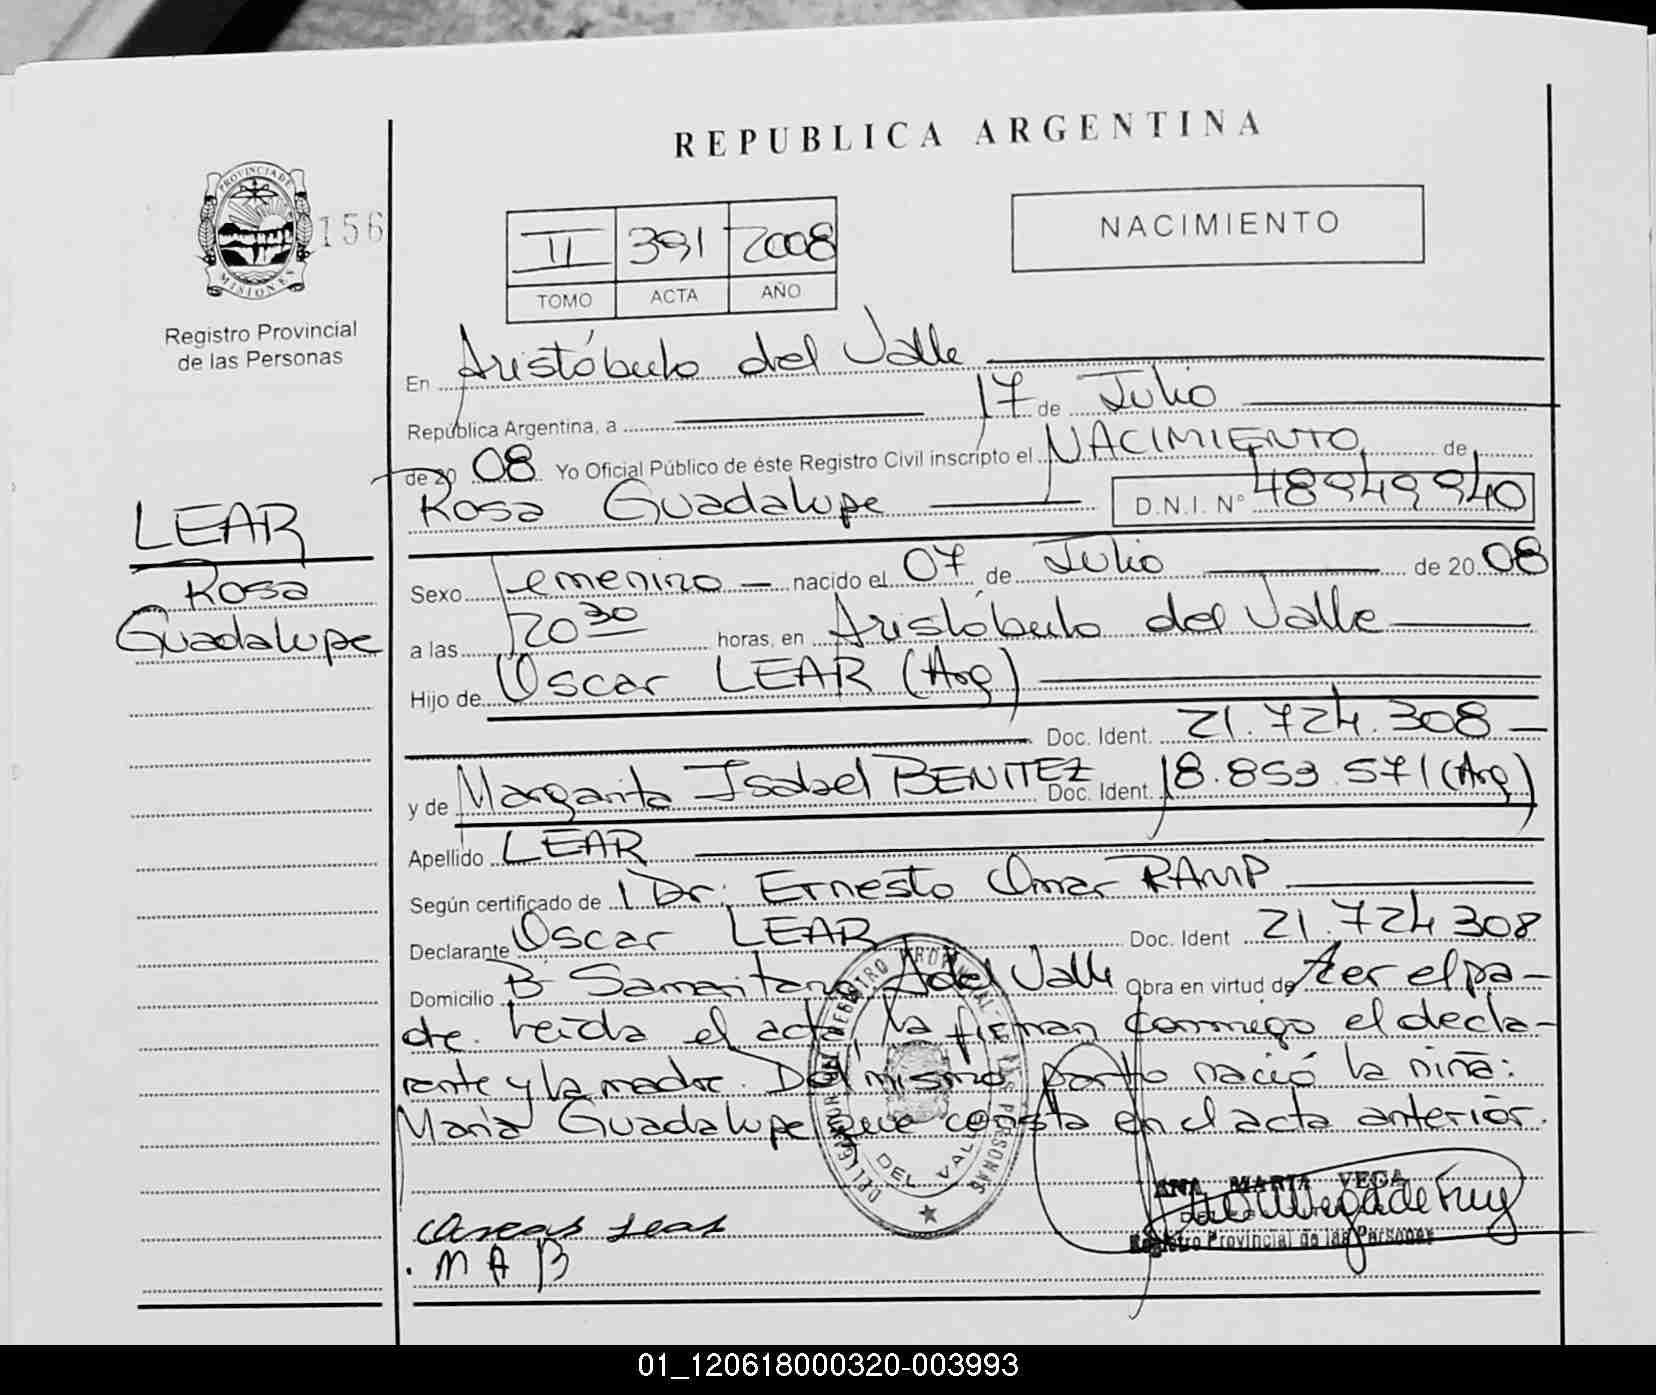 REPUBLICA ARGENTINA
PROVINCIA DE
MISIONES
156
Registro Provincial
de las Personas
II 391 2008
TOMO ACTA AÑO
NACIMIENTO
LEAR
Rosa
Guadalupe
En Aristóbulo del Valle
República Argentina, a 17 de Julio
de 20 08 Yo Oficial Público de éste Registro Civil inscripto el NACIMIENTO de
Rosa Guadalupe D.N.I. N° 48949940
Sexo Femenino nacido el 07 de Julio de 20 08
a las 20 30 horas, en Aristóbulo del Valle
Hijo de Oscar LEAR (Arg)
Doc. Ident. 21.724.308
y de Margarita Isabel BENITEZ Doc. Ident. 18.853.571 (Arg)
Apellido LEAR
Según certificado de Dr. Ernesto Omar RAMP
Declarante Oscar LEAR Doc. Ident 21.724.308
Domicilio B- Samaritano A del Valle Obra en virtud de ser el pa-
dre. Leída el acta, la firman conmigo el decla-
rante y la madre. Del mismo parto nació la niña:
María Guadalupe que consta en el acta anterior.
DEL VALLE
ANA MARIA VEGA
Registro Provincial de las Personas
M A B
01_120618000320-003993